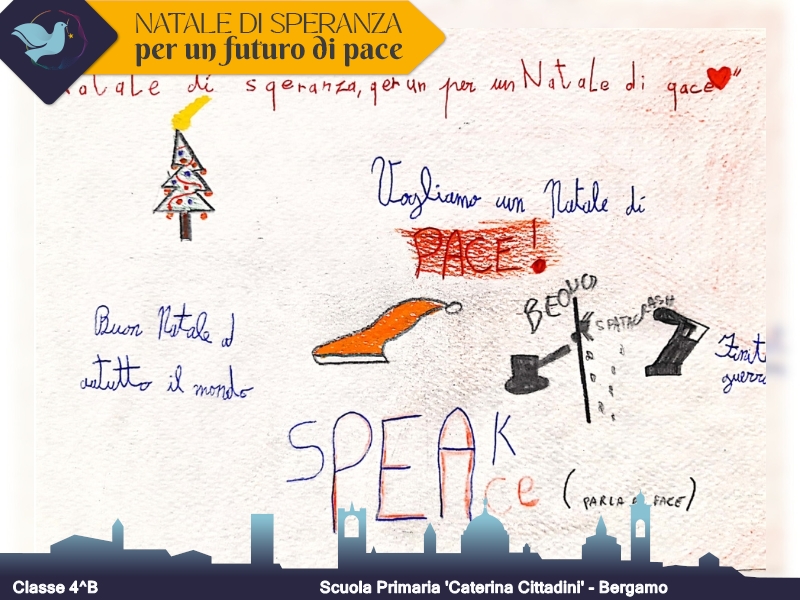 NATALE DI SPERANZA
per un futuro di pace
Natale di speranza, per un per un Natale di pace"
Vogliamo un Natale di
PACE!
BEOUO
SPATACRASH
Buon Natale a
atutto il mondo
Finit
guerr
SPEAK
ce
(PARLA DI PACE)
Classe 4^B
Scuola Primaria 'Caterina Cittadini' - Bergamo